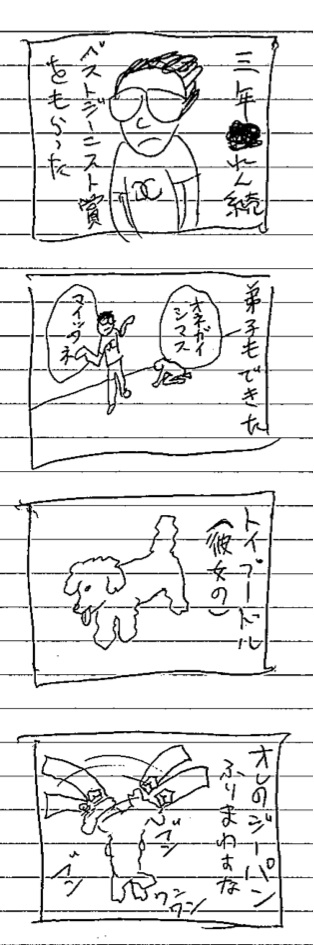 三年れん続
ベストジーニスト賞
をもらった
弟子もできた
オネガイ
シマス
マイッタネ
トイプードル
(彼女の)
オレのジーパン
ふりまわすな
ブン
ブン
ワン
ワン